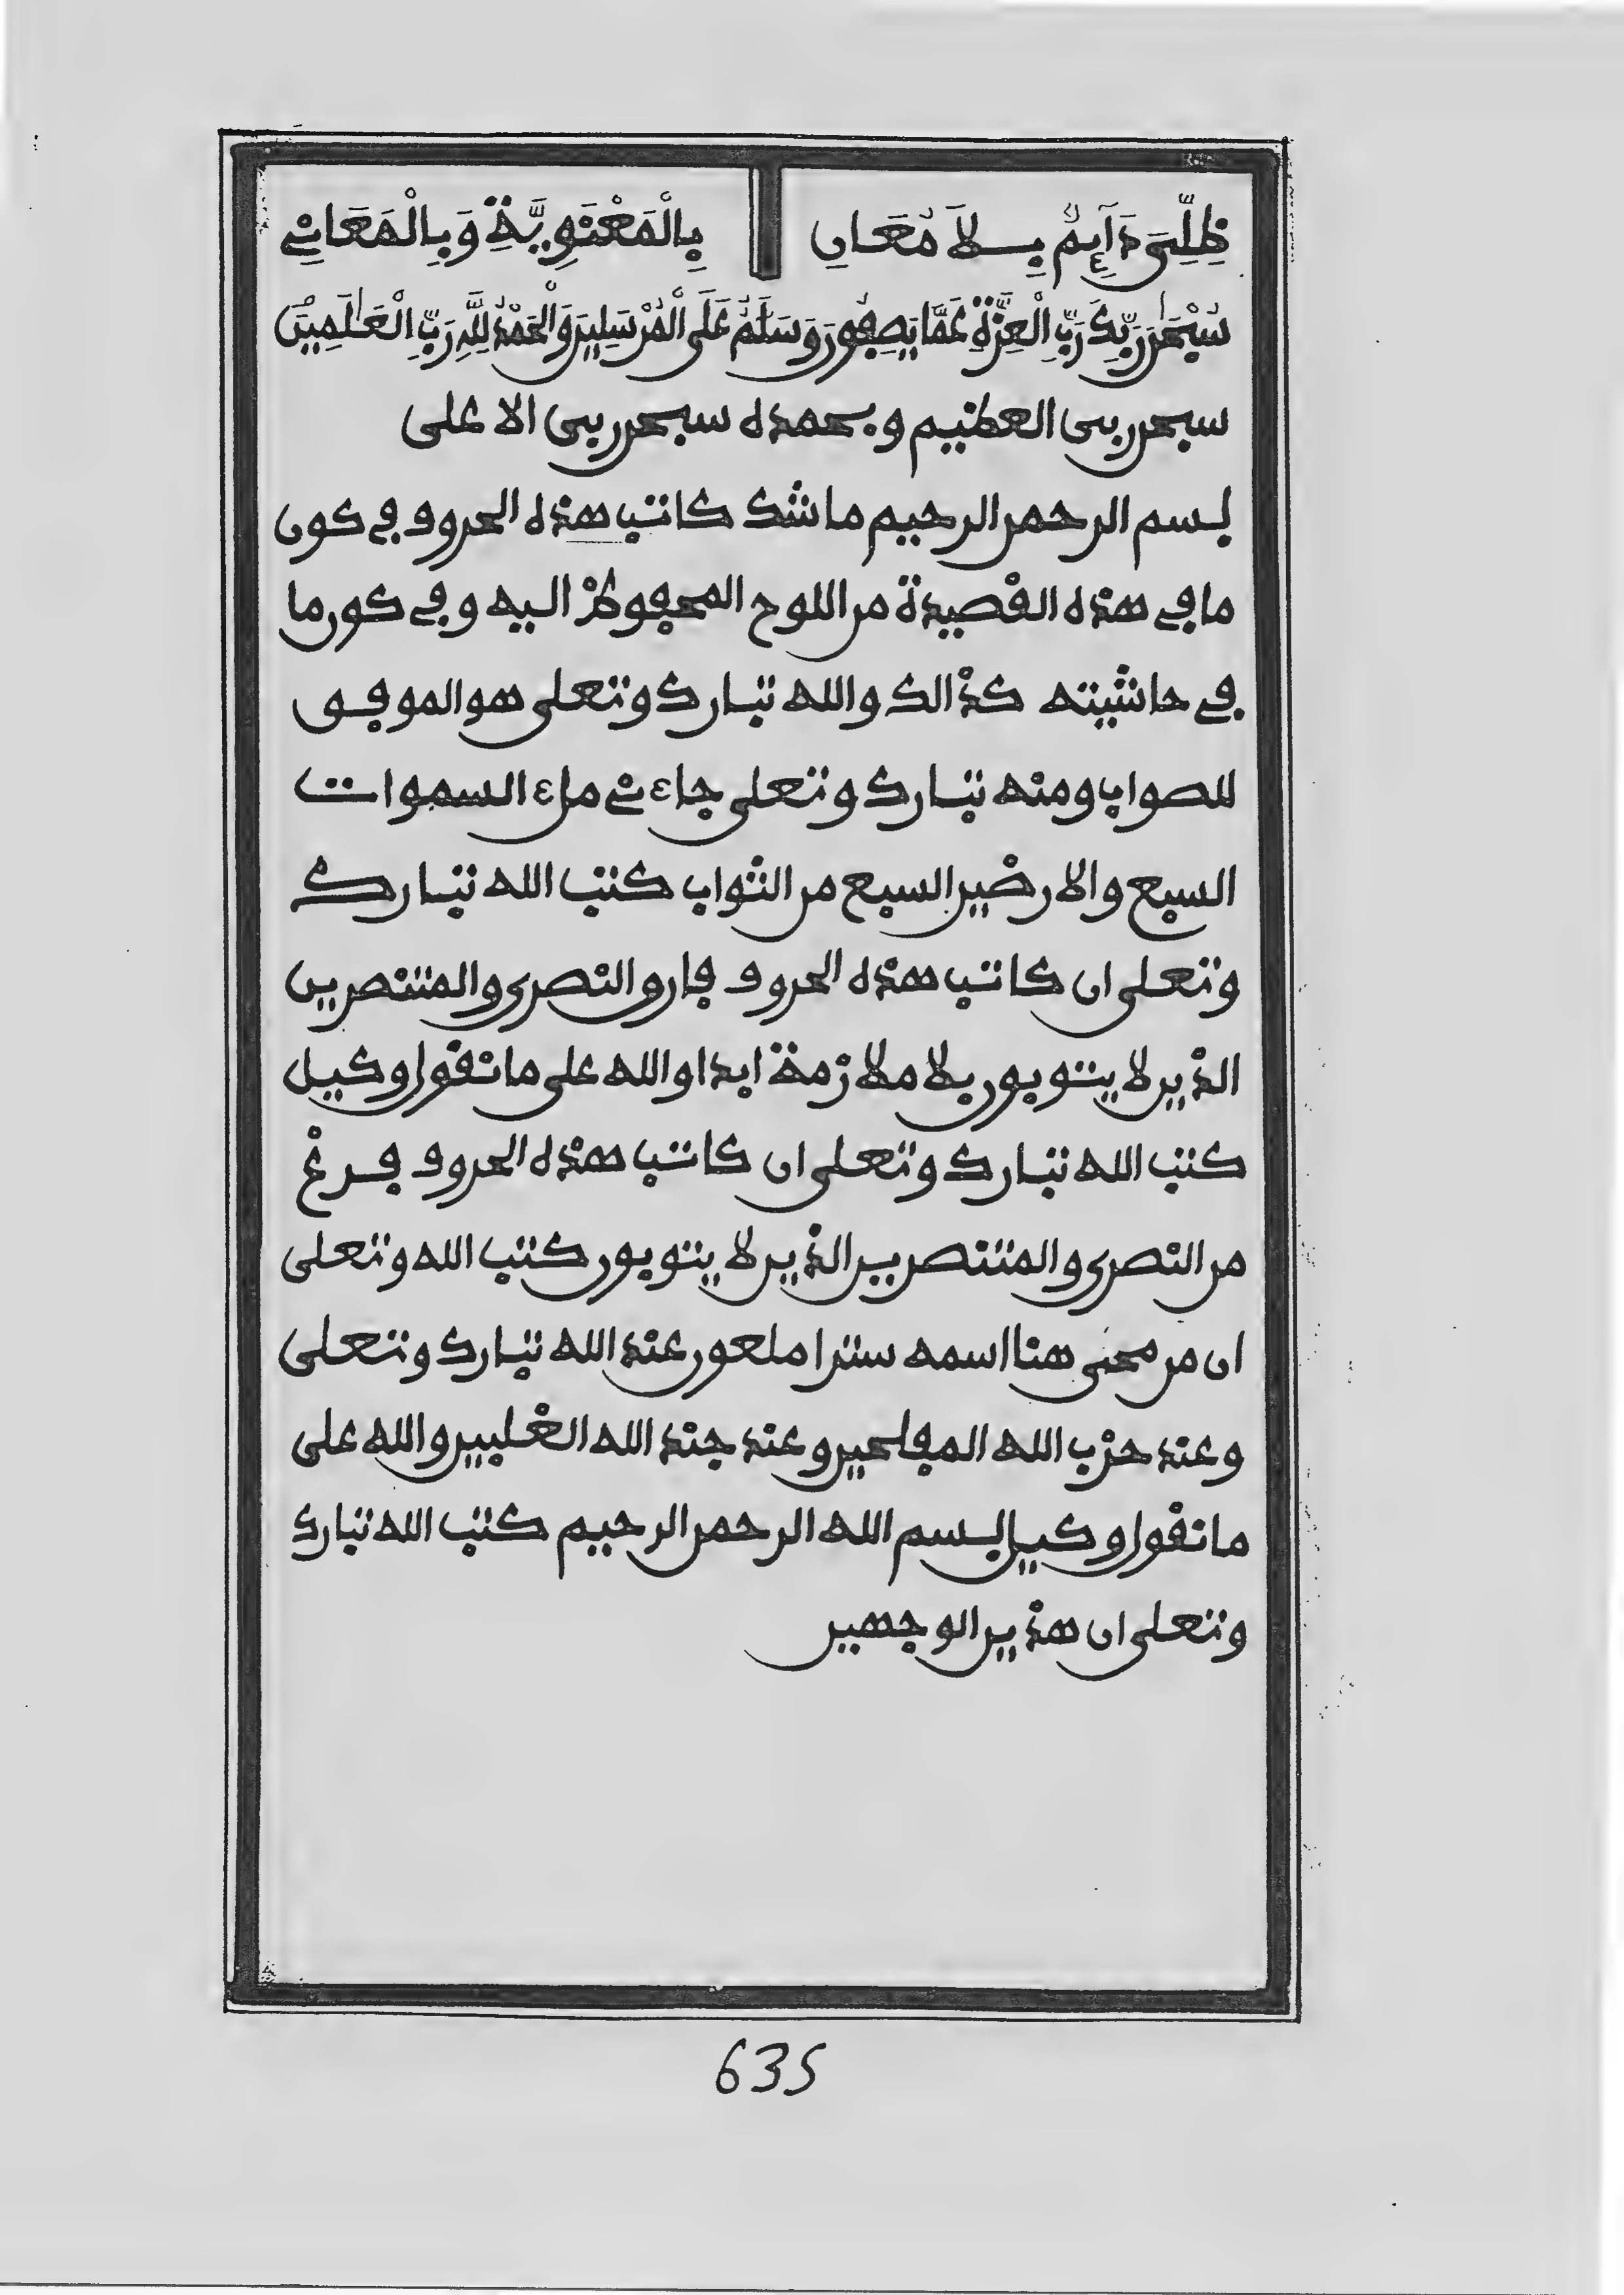 ظِلِّىَ دَآئِمٌ بِــلاَ مُعَـانِ بِالْمَعْنَوِيَّةِ وَبِالْمَعَانِے
سُبْحَٰنَ رَبِّكَ رَبِّ الْعِزَّةِ عَمَّا يَصِفُونَ وَسَلَٰمٌ عَلَى الْمُرْسَلِينَ وَالْحَمْدُ لِلَّهِ رَبِّ الْعَٰلَمِينَ
سبحن ربى العظيم وبحمده سبحن ربى الاعلى
بسم الرحمن الرحيم ما شك كاتب هذه الحروف في كون
ما في هذه القصيدة من اللوح المحفوظ اليه وفي كون ما
في حاشيته كذالك والله تبارك وتعلى هو الموفق
للصواب ومنه تبارك وتعلى جاءنے ملء السموات
السبع والارضين السبع من الثواب كتب الله تبارك
وتعلى ان كاتب هذه الحروف فارق النصرى والمتنصرين
الذين لا يتوبون بلا ملازمة ابدا والله على ما نقول وكيل
كتب الله تبارك وتعلى ان كاتب هذه الحروف فرغ
من النصرى والمتنصرين الذين لا يتوبون كتب الله وتعلى
ان من محى هنا اسمه سترا ملعون عند الله تبارك وتعلى
وعند حزب الله المفلحين وعند جند الله الغلبين والله على
ما نقول وكيل بسم الله الرحمن الرحيم كتب الله تبارك
وتعلى ان هذين الوجهين
635